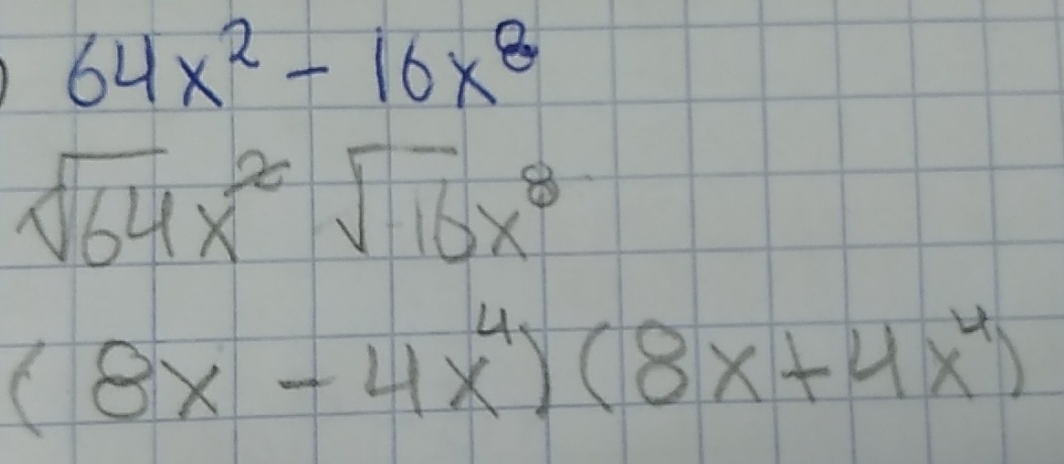 ) 64x² - 16x⁸
√64x² √16x⁸
(8x - 4x⁴)(8x+4x⁴)